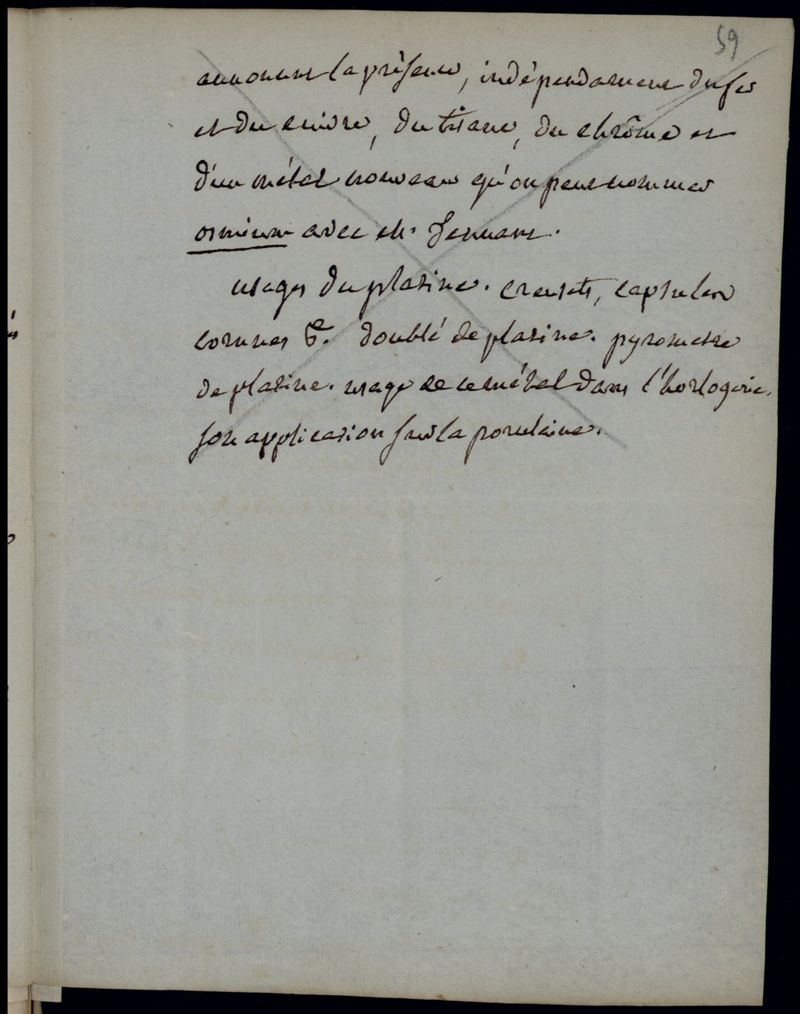 59
annoncent la présence, indépendament du fer
et du cuivre, du titane, du chrôme et
d'un métal nouveau qu'on peut nommer
osmium avec Mr. Tennant.
usages du platine. creusets, capsules
cornues &c. doublé de platine. pyrometre
de platine. usage de ce métal dans l'horlogerie.
son application sur la porcelaine.